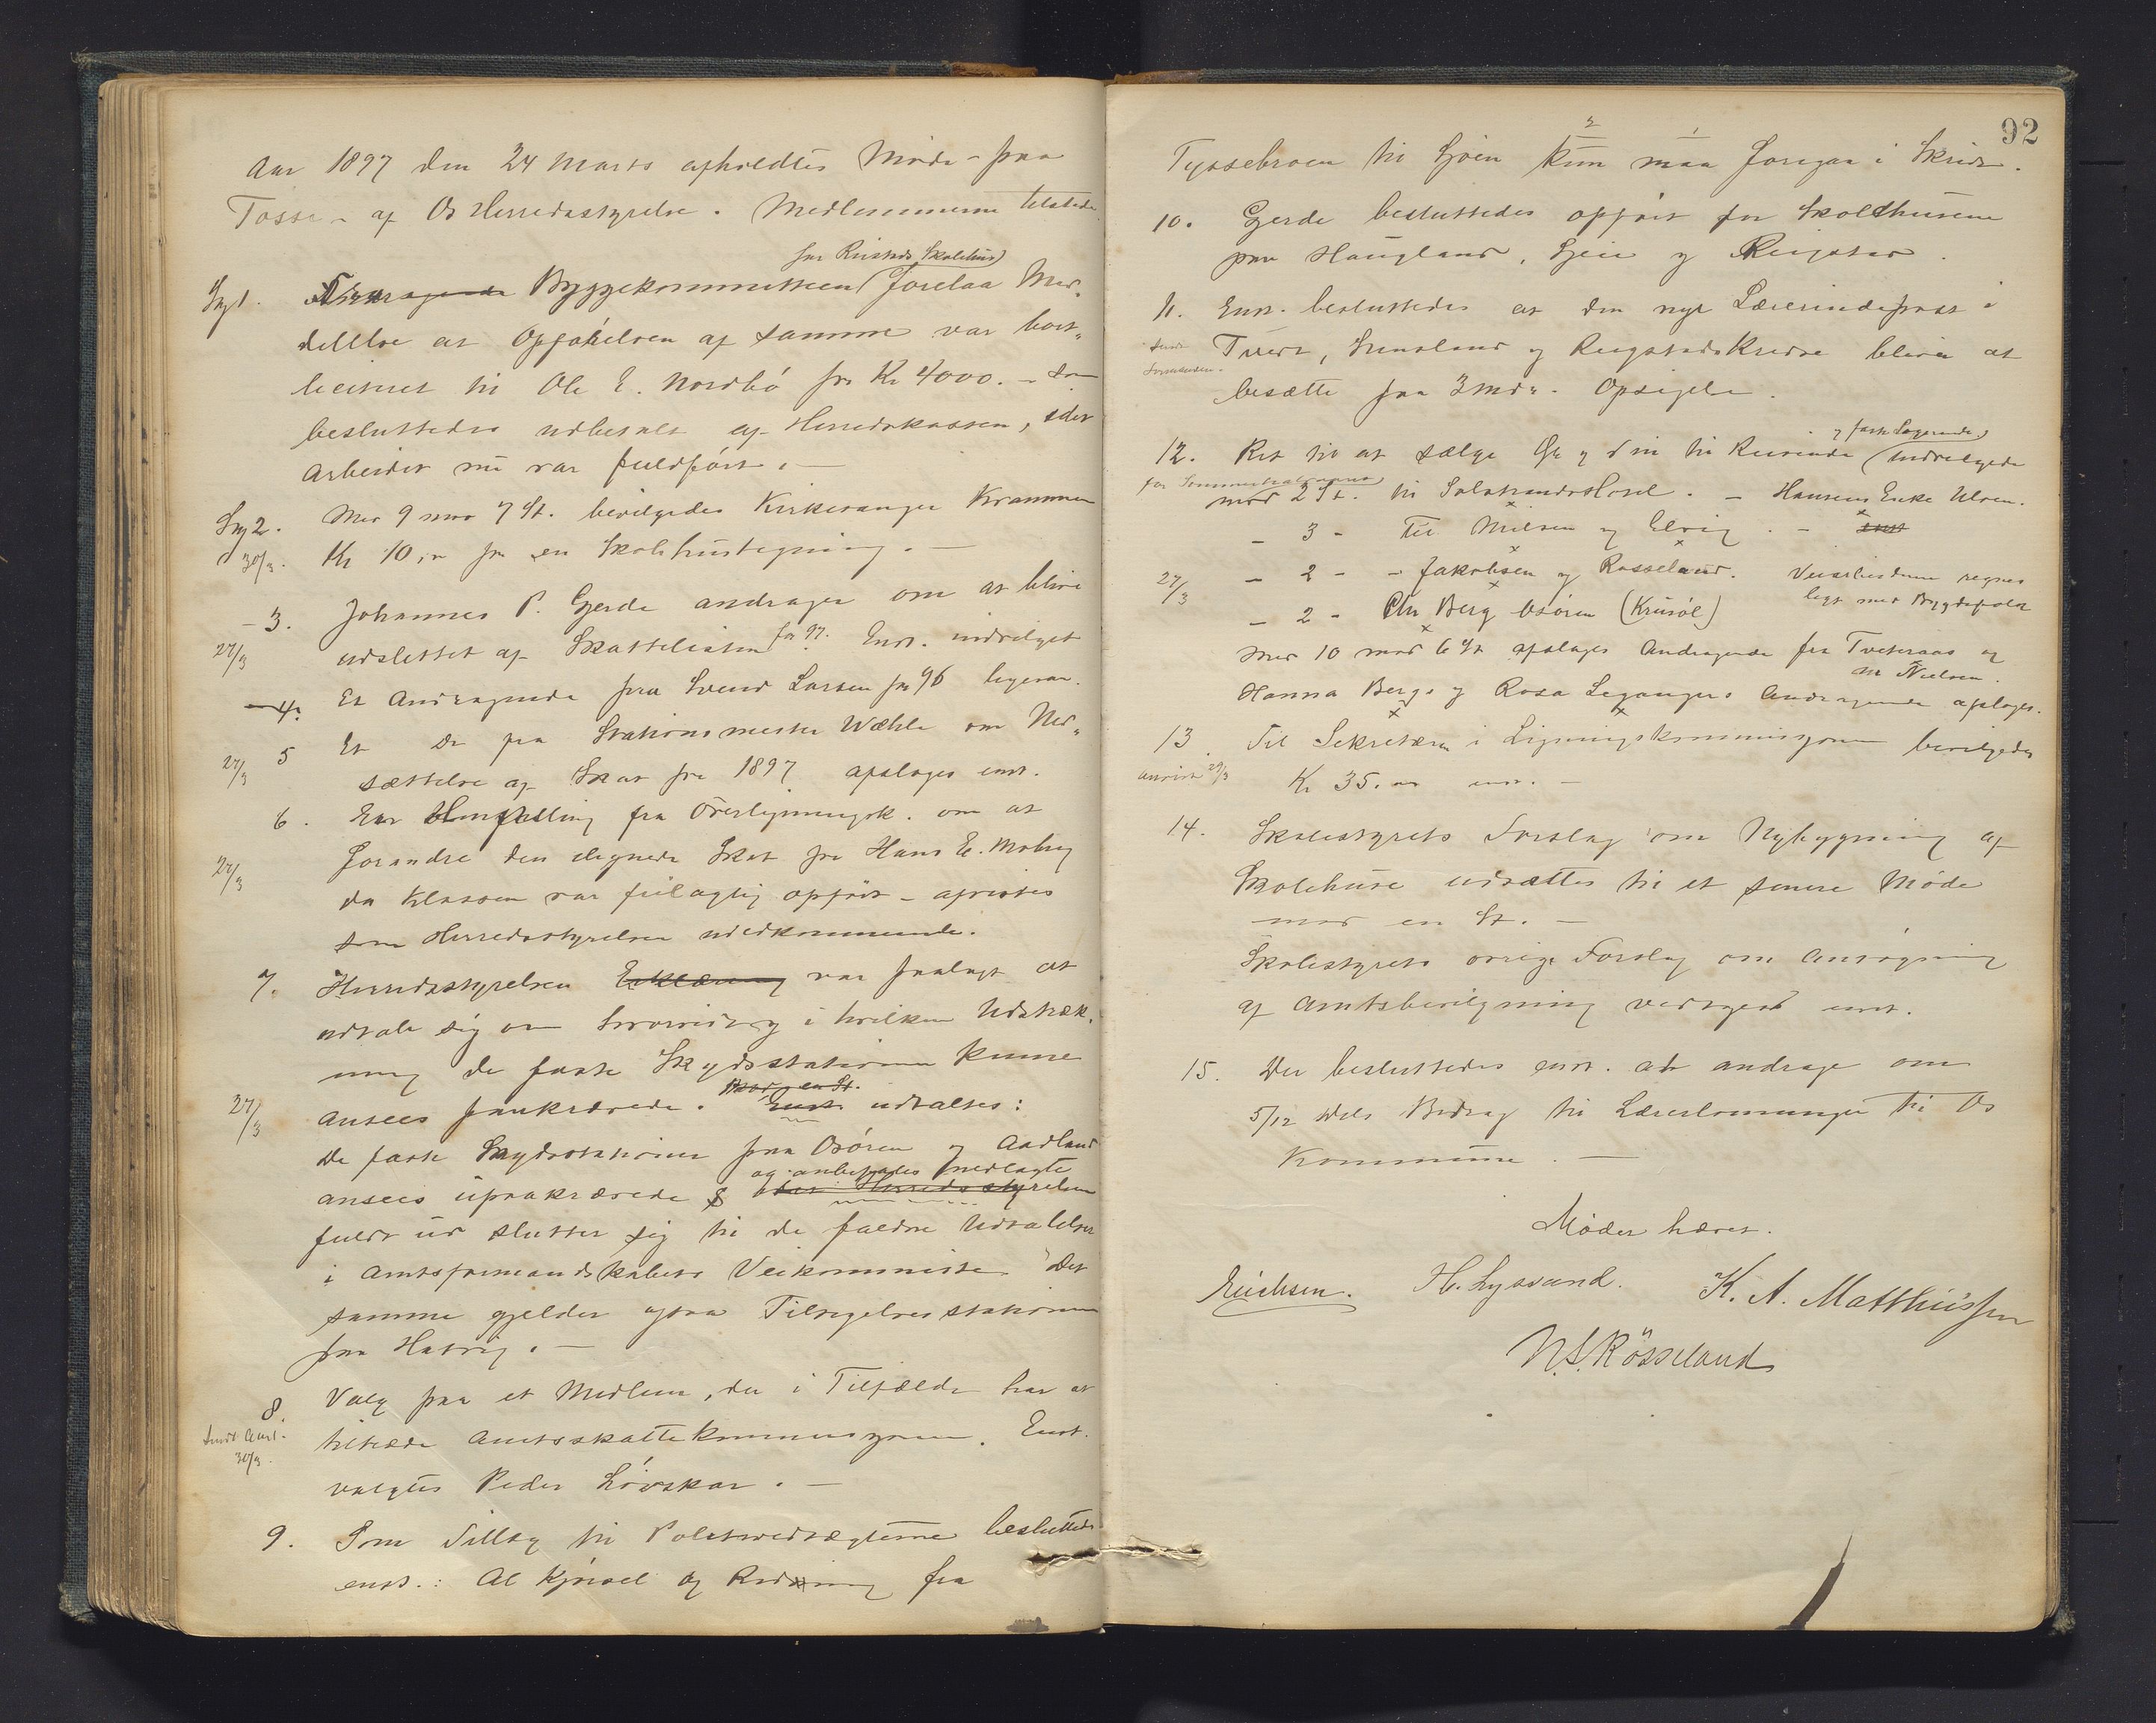 Aar 1897 den 24 Marts afholdtes Møde paa
Tøsse af Os Herredsstyrelse. Medlemmerne tilstede.
for Riisteds Skolehus
Sag 1. Byggekommitteen forelaa Med-
delelse at Opførelsen af samme var bort-
liciteret til Ole E. Nordbø for Kr 4000. - som
besluttedes udbetalt af Herredskassen, idet
Arbeidet nu var fuldført. -
Sag 2. Med 9 mod 7 St. bevilgedes Kirkesanger Krammer
30/3. Kr 10,- for en Skolehustegning. -
- 3. Johannes P. Gjerde andrager om at blive
27/3 udslettet af Skattelisten for 97. Enst. indvilget
- 4. Et Andragende fra Svend Larsen for 96 ligesaa.
5 Et Do fra Stationsmester Wæhle om Ned-
27/3 sættelse af Skat for 1897 afslages enst.
6. En Henstilling fra Overligningsk. om at
27/3 forandre den ilignede Skat for Hans E. Moberg
da Klassen var feilagtig opført - afvistes
som Herredsstyrelsen uvedkommende.
7. Herredsstyrelsen Erklæring var paalagt at
udtale sig om hvorvidt og i hvilken Udstræk-
ning de faste Skydsstationer kunne
27/3 ansees paakrævede. Enst. udtaltes:
Mod en St.
De faste Skydsstationer paa Osøren og Aadland
og anbefales nedlagte
ansees upaakrævede & idet Herredsstyrelsen
fuldt ud slutter sig til de faldne Udtalelser
i Amtsformandskabets Veikommitte. Det
samme gjelder ogsaa Tilsigelsesstationen
paa Hatvig. -
8. Valg paa et Medlem, der i Tilfælde har at
Sendt Amt. 30/3. tiltræde Amtsskattekommissionen. Enst.
valgtes Peder Løvskar. -
9. Som Tillæg til Politivedtægterne besluttedes
enst.: At Kjørsel og Ridning fra
92
Tyssebroen til Sjøen kun maa foregaa i Skridt.
10. Gjerde besluttedes opført for Skolehusene
paa Haugland, Gjeie og Reigstad.
11. Enst. besluttedes at den nye Lærerindepost i
Tveit, Grenland og Reigstadkredse bliver at
besætte paa 3 mdr. Opsigelse.
og faste Logerende
12. Ret til at sælge Øl og Vin til Reisende indvilgede
for Sommerhalvaaret
mod 2 St. til Solstrands Hotel. - Hansens Enke Ulven.
- 3 - Til Nielsen og Elvig. -
27/3 - 2 - - Jakobsen og Rosseland. Veiarbeiderne regnes
- 2 - Chr Berg Osøren (Krusøl) ligt med Bygdefolk
Med 10 mod 6 St. afslages Andragende fra Tveteraas og
M Nielsen.
Hanna Bergs og Rosa Legangers Andragende afslages.
13. Til Sekretæren i Ligningskommissionen bevilgedes
Anvist 29/3 Kr 35.00 enst. -
14. Skolestyrets Forslag om Nybygning af
Skolehuse udsættes til et senere Møde
mod en St. -
Skolestyrets øvrige Forslag om Ansøgning
af Amtsbevilgning vedtoges enst.
15. Der besluttedes enst. at andrage om
5/12 Dels Bidrag til Lærerlønninger til Os
Kommune. -
Mødet hævet.
Erichsen. H. Lyssand. K. A. Matthiessen
N. L. Røsseland